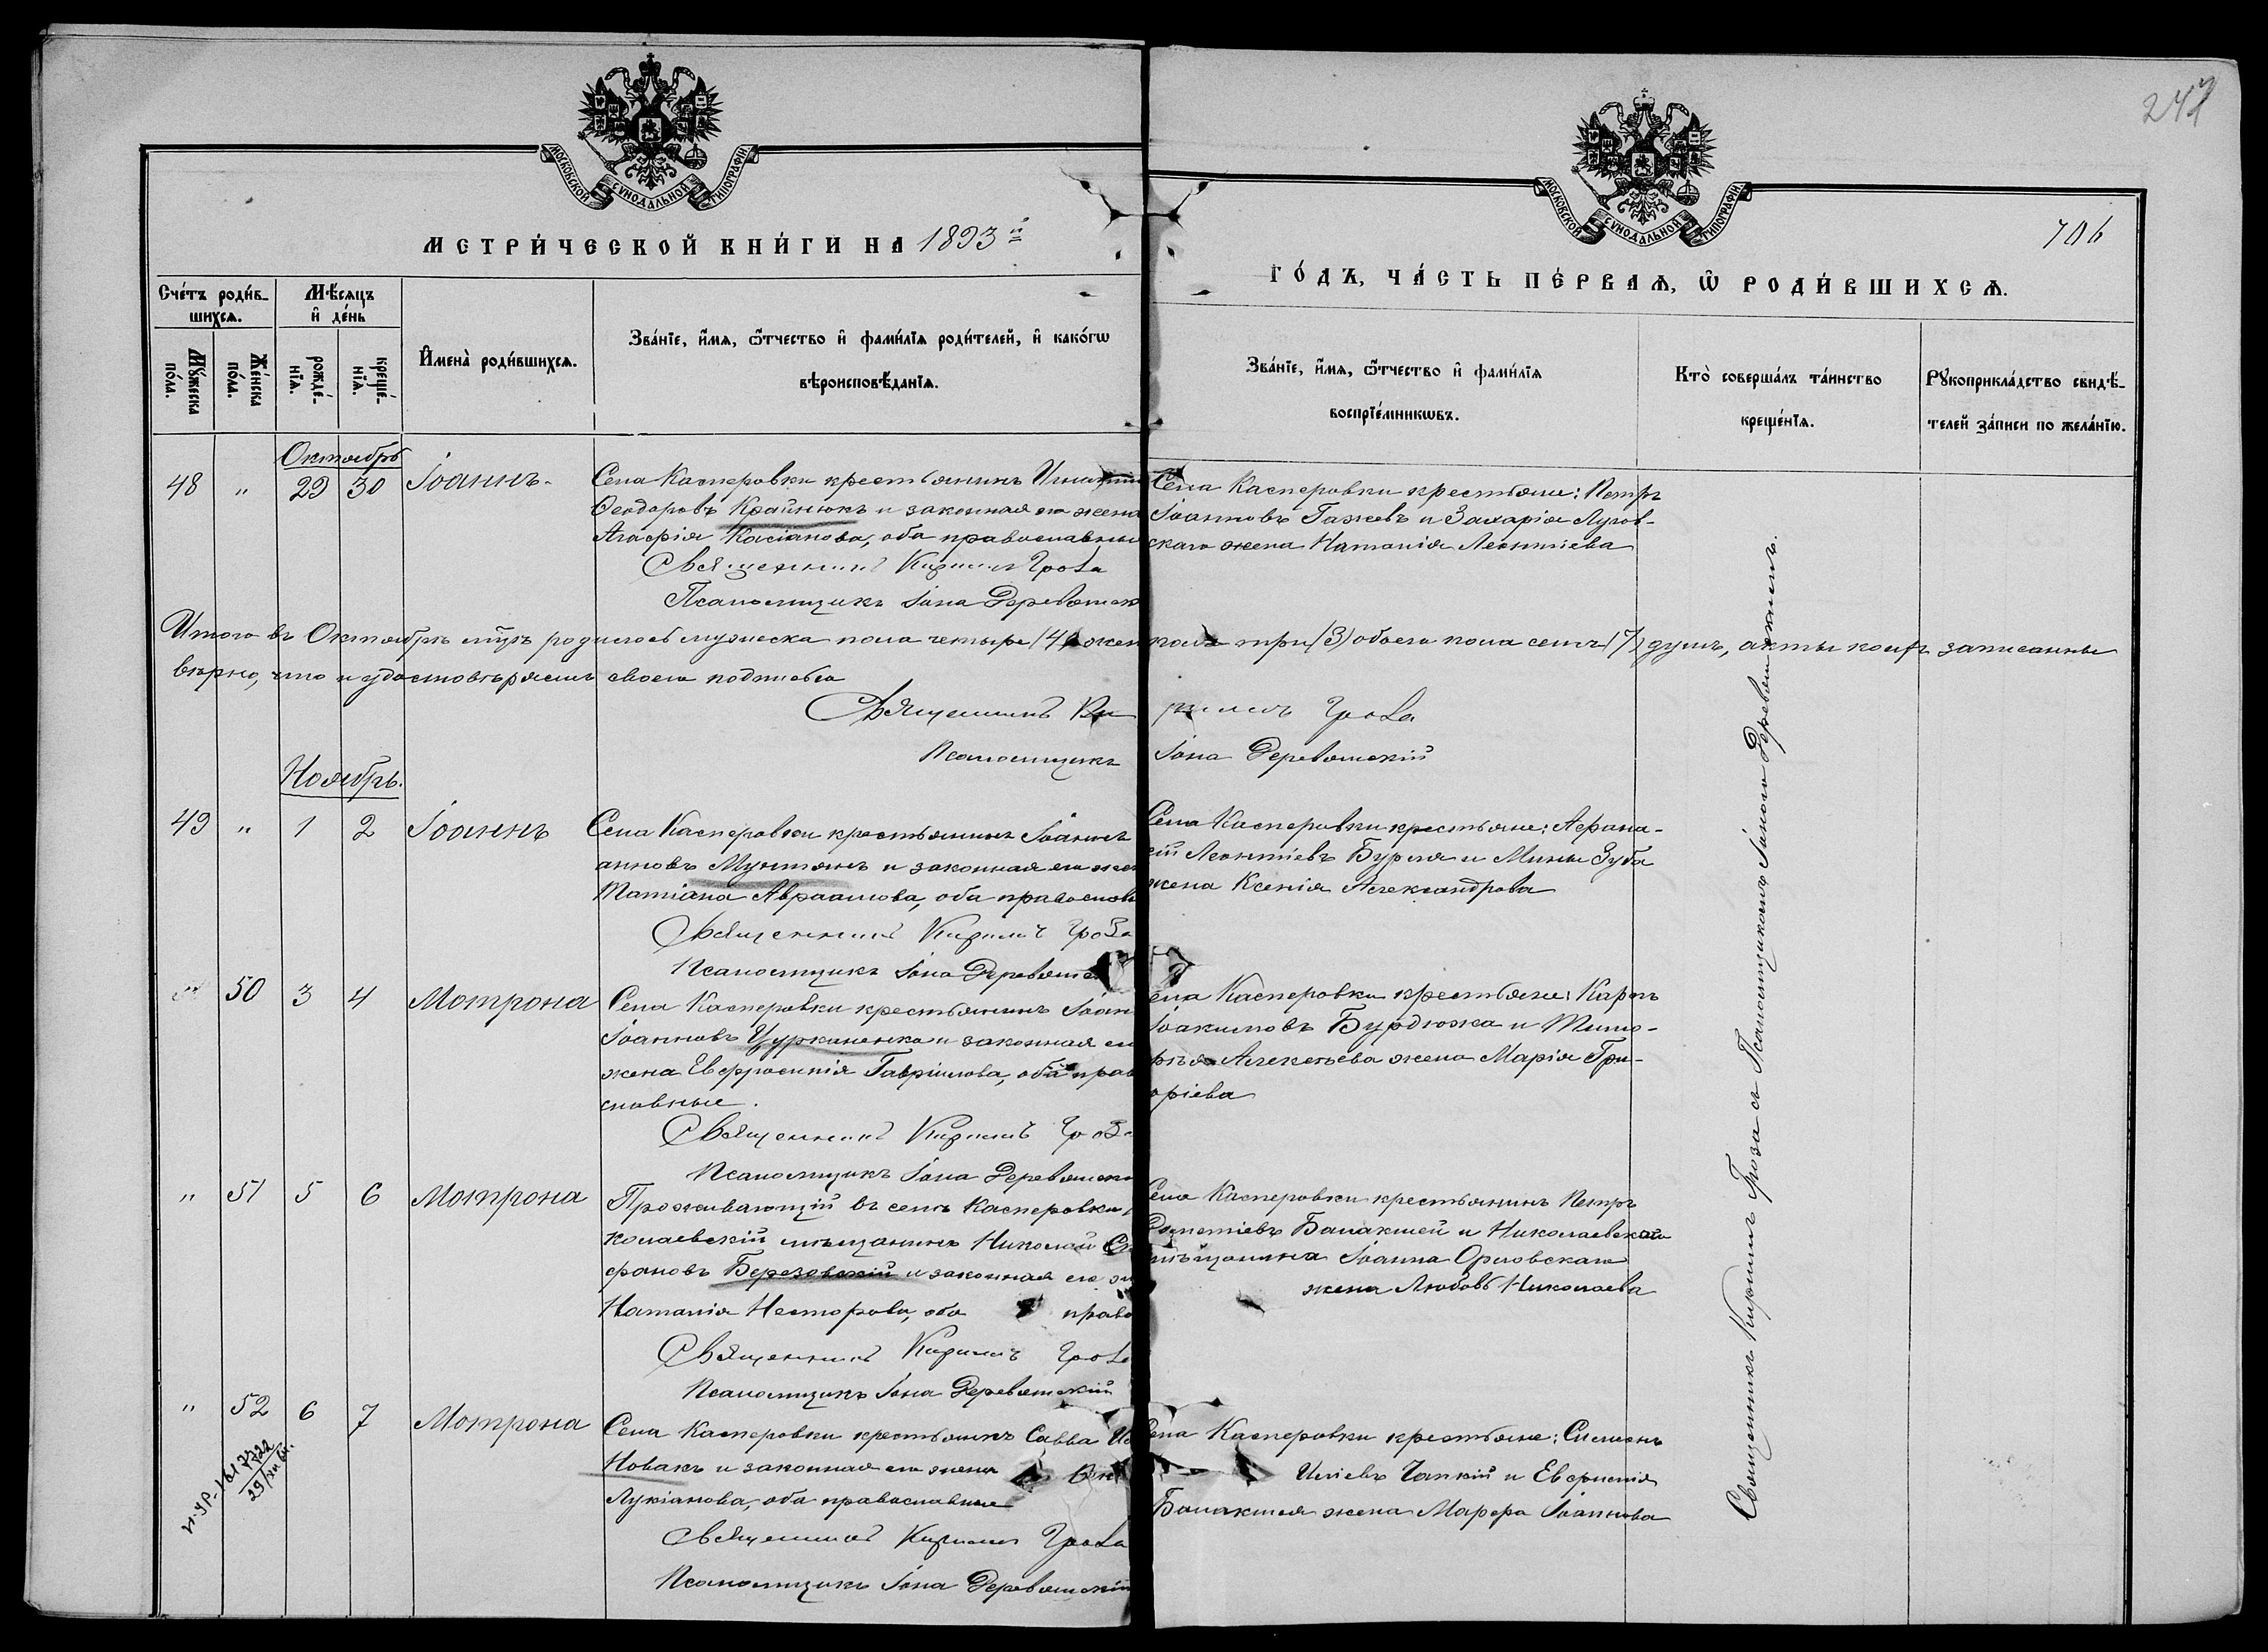 247
МОСКОВСКОЙ СѴНОДАЛЬНОЙ ТИПОГРАФІИ
МОСКОВСКОЙ СѴНОДАЛЬНОЙ ТИПОГРАФІИ
706
МЕТРИ́ЧЕСКОЙ КНИ́ГИ НА 1893й
ГО́ДЪ, ЧА́СТЬ ПЕ́РВАѦ, Ѽ РОДИ́ВШИХСѦ.
Сче́тъ роди́вшихсѧ.
Мѣ́сѧцъ и҆ де́нь
Мꙋ́жеска по́ла.
Же́нска по́ла.
рожде́нїѧ.
креще́нїѧ.
И҆мена̀ роди́вшихсѧ.
Зва́нїе, и҆́мѧ, ѻ҆́тчество и҆ фами́лїѧ роди́телей, и҆ како́гѡ
вѣроисповѣ́данїѧ.
Зва́нїе, и҆́мѧ, ѻ҆́тчество и҆ фами́лїѧ
воспрїе́мникѡвъ.
Кто̀ соверша́лъ та́инство
креще́нїѧ.
Рꙋкоприкла́дство свидѣ́-
телей за́писи по жела́нїю.
Октябрь
48 " 29 30 Іоаннъ.
Села Касперовки крестьянинъ
Ѳеодоровъ Крайнюкъ и законная его жена
Агафія Касіанова, оба православные
Священникъ Кириллъ Гроза
Псаломщикъ Іона Деревянск
Села Касперовки крестьяне: Петръ
Іоанновъ Гажевъ и Захарія Лугов-
скаго жена Наталія Леонтіева
Итого въ Октябрѣ м̃цѣ родилось мужеска пола четыре (4) жен пола три (3) обоего пола семь (7) душъ, акты коихъ записанны
вѣрно, что и удостовѣряемъ своею подписью
Священникъ Кириллъ Гроза
Псаломщикъ Іона Деревянскій
Ноябрь.
49 " 1 2 Іоаннъ
Села Касперовки крестьянинъ Іоаннъ
анновъ Мунтянъ и законная его жен
Татіана Авраамова, оба православ
Священникъ Кириллъ Гроза
Псаломщикъ Іона Деревянск
Села Касперовки крестьяне: Афана-
сій Леонтіевъ Бурля и Мины Зуба
жена Ксенія Александрова
" 50 3 4 Мотрона
Села Касперовки крестьянинъ Іоан
Іоанновъ Цурканенко и законная его
жена Евфросинія Гавріилова, оба прав
славные.
Священникъ Кириллъ Гроза
Псаломщикъ Іона Деревянскі
Села Касперовки крестьяне: Карпъ
Іоакимовъ Бурдюжа и Тимо-
фѣя Алексѣева жена Марія Гри-
горіева
" 51 5 6 Мотрона
Проживающій въ селѣ Касперовки
колаевскій мѣщанинъ Николай Сте
фановъ Березовскій и законная его ж
Наталія Несторова, оба право
Священникъ Кириллъ Гроза
Псаломщикъ Іона Деревянскій
Села Касперовки крестьянинъ Петръ
Дометіевъ Балакшей и Николаевскаго
мѣщанина Іоанна Орловскаго
жена Любовь Николаева
" 52 6 7 Мотрона
Села Касперовки крестьянинъ Савва
Новакъ и законная его жена
Лукіанова, оба православные
Священникъ Кириллъ Гроза
Псаломщикъ Іона Деревянскій
Села Касперовки крестьяне: Симеонъ
Иліевъ Чапкій и Евфимія
Балакшея жена Марфа Іоаннова
Священникъ Кириллъ Гроза съ Псаломщикомъ Іоною Деревянскимъ.